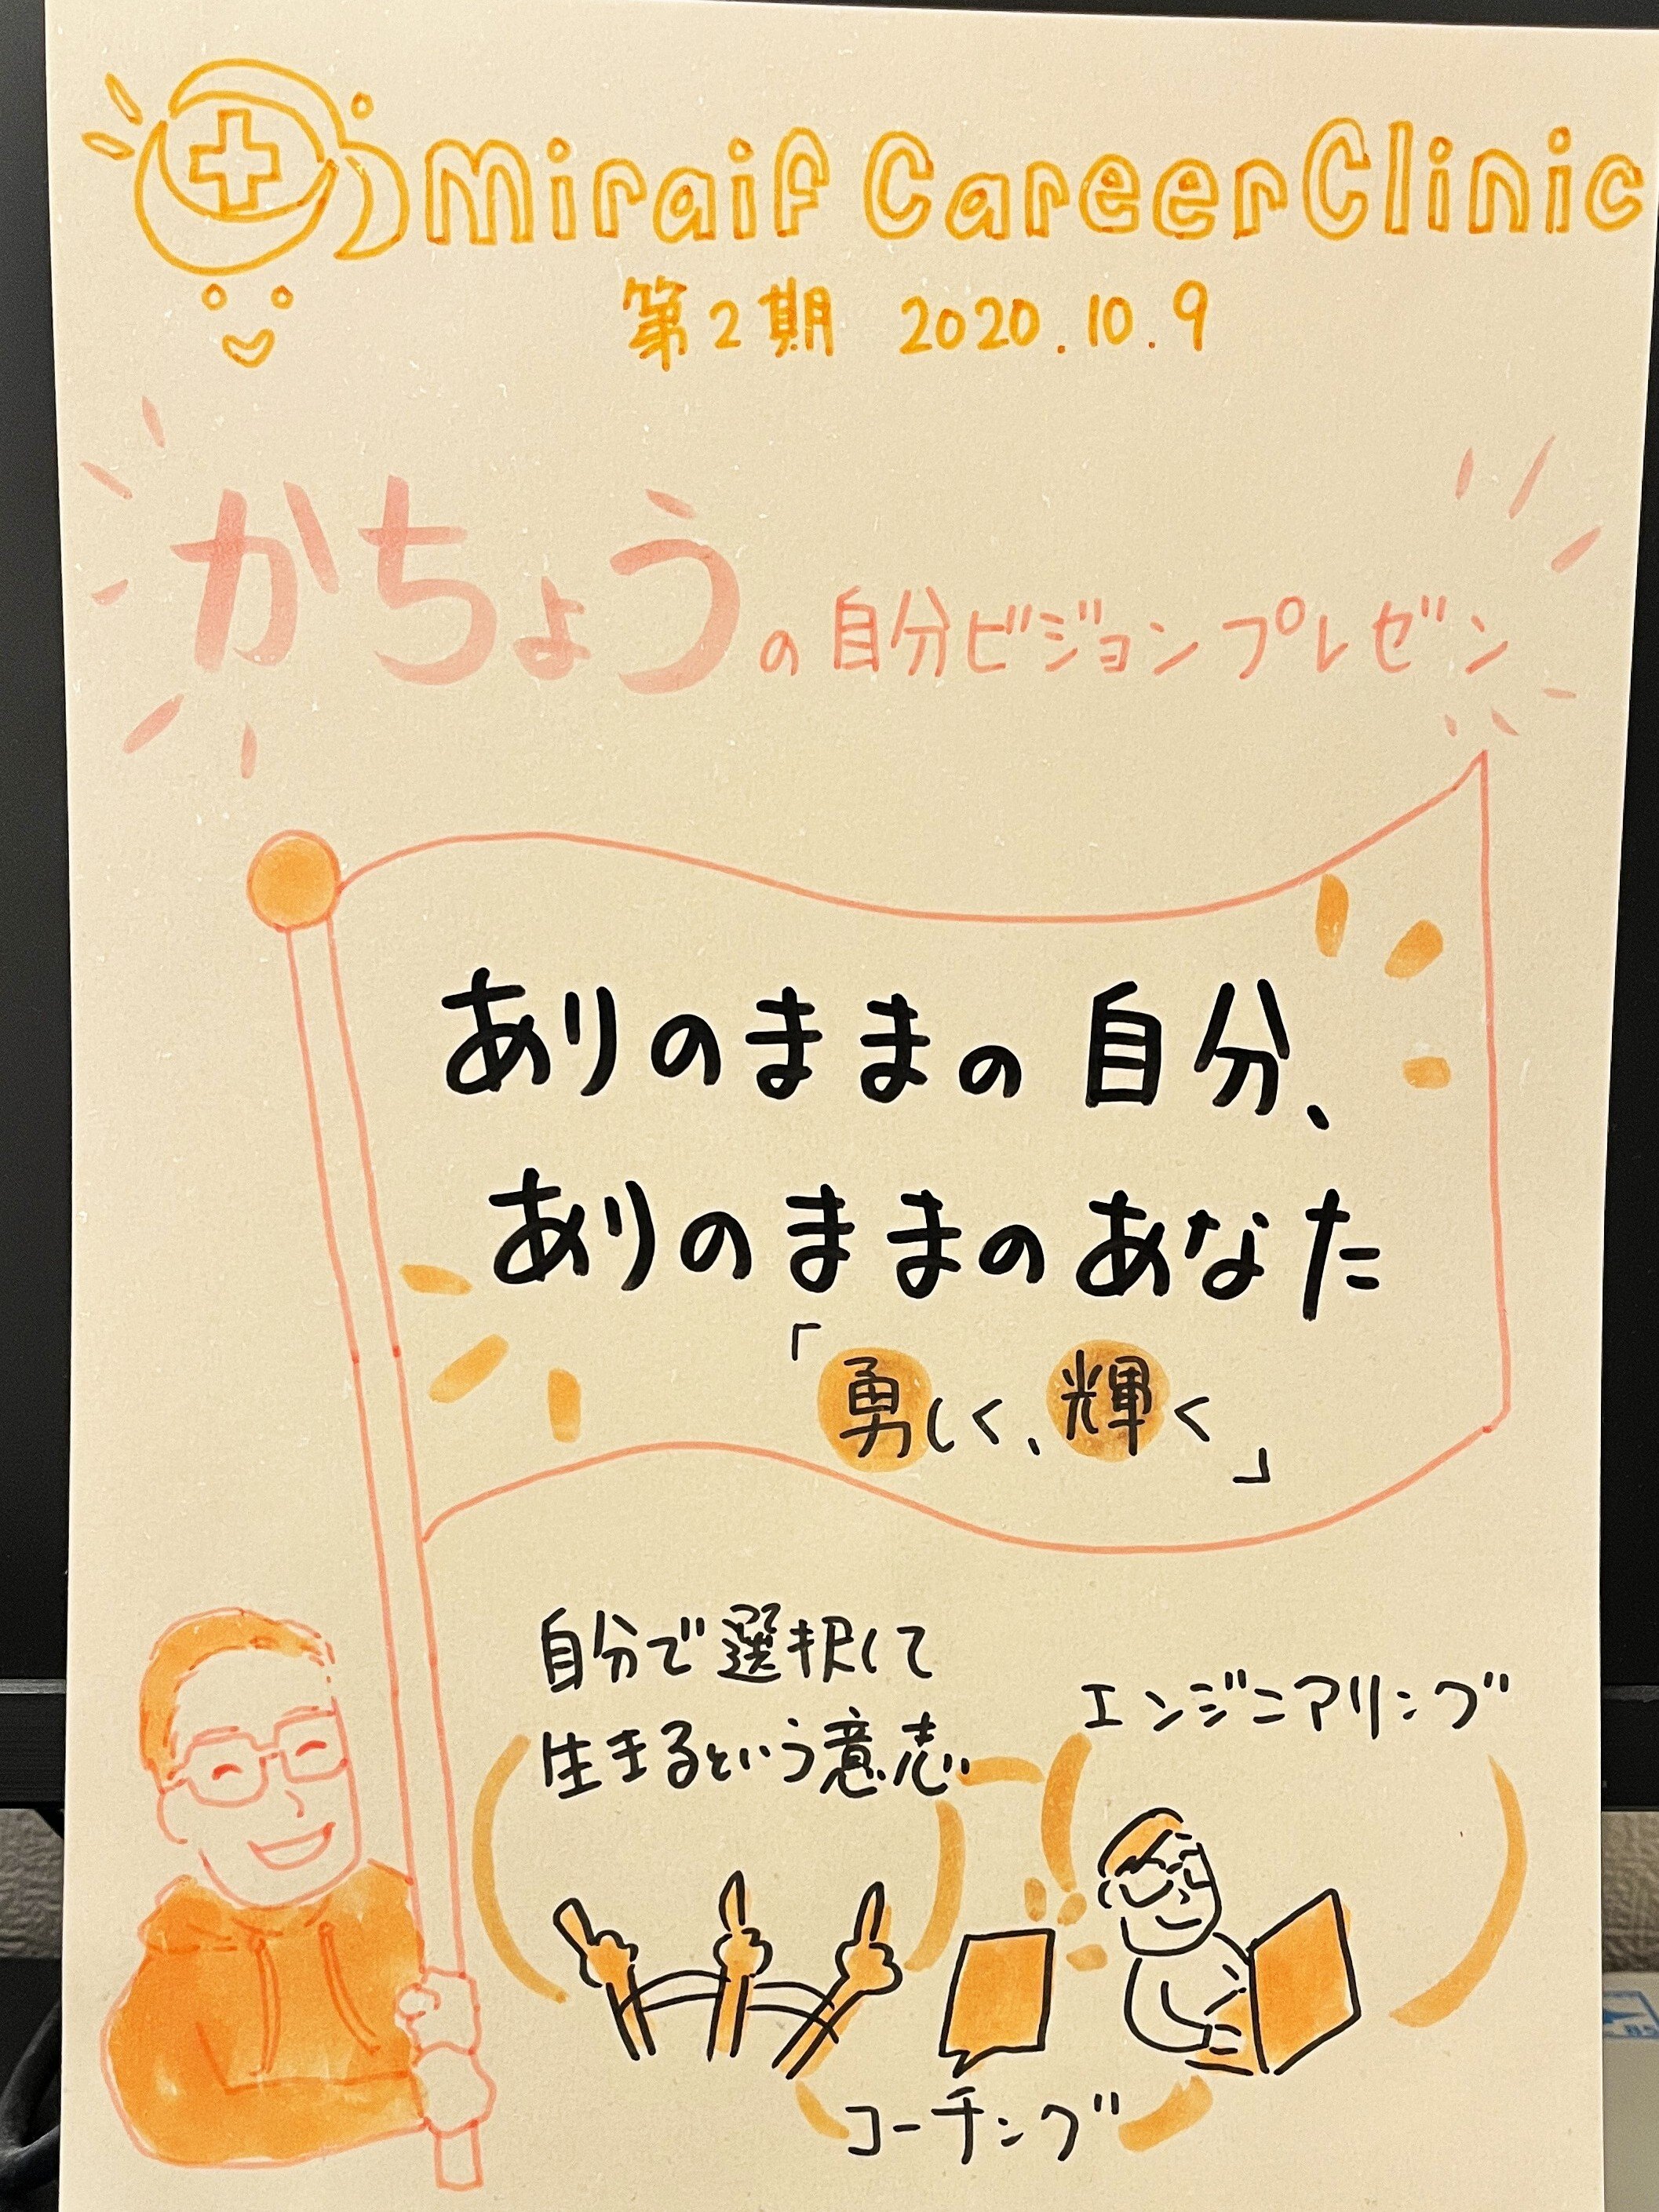 Miraif Career Clinic
第2期 2020.10.9
かちょうの自分ビジョンプレゼン
ありのままの自分、
ありのままのあなた
「勇しく、輝く」
自分で選択して
生きるという意志
エンジニアリング
コーチング